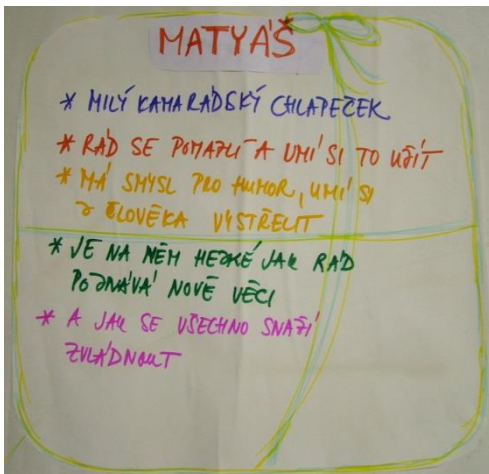 MATYÁŠ
* MILÝ KAMARÁDSKÝ CHLAPEČEK
* RÁD SE POMAZLÍ A UMÍ SI TO UŽÍT
* MÁ SMYSL PRO HUMOR, UMÍ SI
Z ČLOVĚKA VYSTŘELIT
* JE NA NĚM HEZKÉ JAK RÁD
POZNÁVÁ NOVÉ VĚCI
* A JAK SE VŠECHNO SNAŽÍ
ZVLÁDNOUT